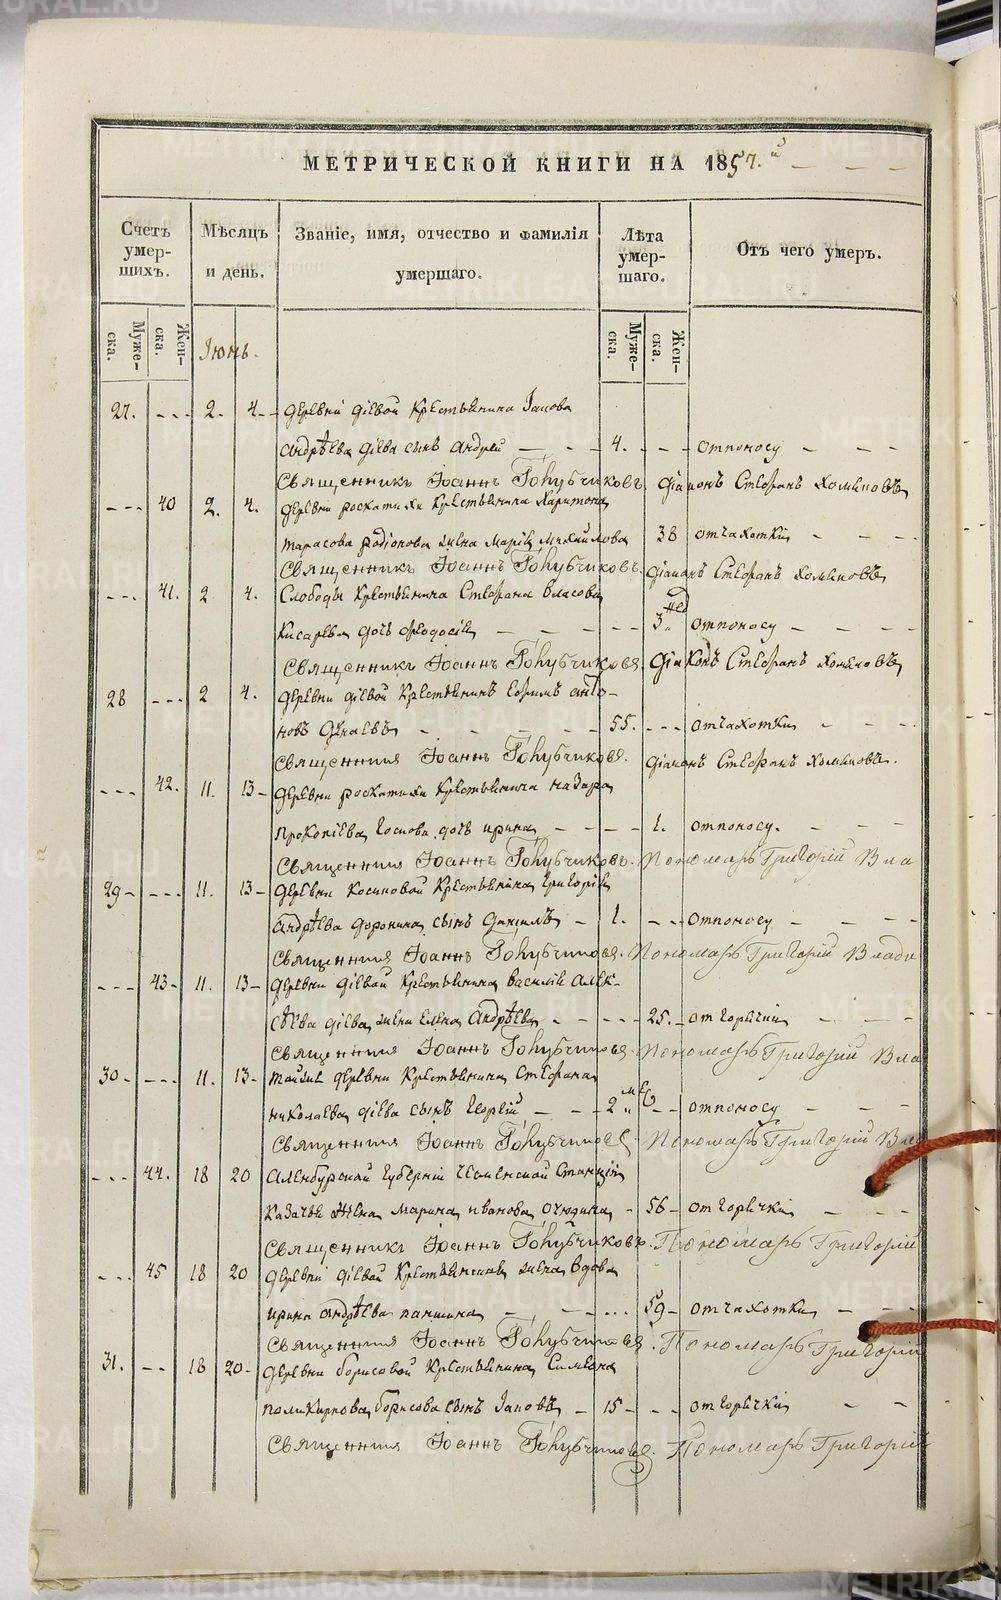 МЕТРИЧЕСКОЙ КНИГИ НА 1857.й
Счетъ умер-шихъ. Мѣсяцъ и день. Званіе, имя, отчество и фамилія умершаго. Лѣта умер-шаго. Отъ чего умеръ.
Муже-ска. Жен-ска. Іюнь. Муже-ска. Жен-ска.
27. 2. 4. деревни діевой крестьянина Іакова
андрѣева діева сынъ андрей 4. отпоносу
Священникъ Іоаннъ Голубчиковъ. діаконъ Стефанъ Хомяковъ
40 2. 4. деревни роскатихи крестьянина харитона
тарасова родіонова жена марія михайлова 38 отчахотки
Священникъ Іоаннъ Голубчиковъ. діаконъ Стефанъ Хомяковъ
41. 2 4. Слободы крестьянина Стефана власова
кисарева дочь феодосія 3 нед отпоносу
Священникъ Іоаннъ Голубчиковъ. діаконъ Стефанъ Хомяковъ
28 2 4. деревни діевой крестьянинъ ефимъ анто-
новъ 55. отчахотки
Священникъ Іоаннъ Голубчиковъ. діаконъ Стефанъ Хомяковъ.
42. 11. 13 деревни роскатихи крестьянина назара
прокопіева дочь ирина 1. отпоносу.
Священникъ Іоаннъ Голубчиковъ. Пономарь Григорій Вла
29 11. 13 деревни косиновой крестьянина григорія
андрѣева доронина сынъ даніилъ 1. отпоносу
Священникъ Іоаннъ Голубчиковъ. Пономарь Григорій Влади
43 11. 13 деревни діевой крестьянина василія алек-
сѣева діева жена елена андрѣева 25. отгорячки
Священникъ Іоаннъ Голубчиковъ. Пономарь Григорій Вла
30 11. 13 тойже деревни крестьянина Стефана
николаева діева сынъ георгій 2 мес отпоносу
Священникъ Іоаннъ Голубчиковъ. Пономарь Григорій Вла
44. 18 20 Аленбурской губерніи чесменской станціи
казачья жена марина иванова 56 отгорячки
Священникъ Іоаннъ Голубчиковъ. Пономарь Григорій
45 18 20 деревни діевой крестьянская жена вдова
ирина андрѣева паншина 59 отчахотки
Священникъ Іоаннъ Голубчиковъ. Пономарь Григорій
31. 18 20 деревни борисовой крестьянина Симеона
поликарпова борисова сынъ Іаковъ 15 отгорячки
Священникъ Іоаннъ Голубчиковъ. Пономарь Григорій
METRIKI.GASO-URAL.RU